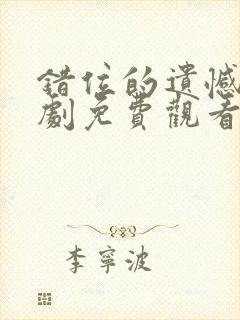 錯位的遺憾
劇免費觀看
李寧波